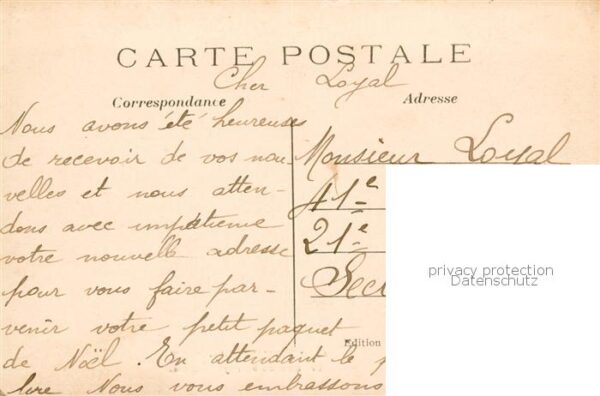 CARTE POSTALE
Cher Loyal
Correspondance
Adresse
Nous avons été heureuses
de recevoir de vos nou-
velles et nous atten-
dons avec impatience
votre nouvelle adresse
pour vous faire par-
venir votre petit paquet
de Noël. En attendant le
lire Nous vous embrassons
Monsieur Loyal
41e
21e
Secr
Edition
privacy protection
Datenschutz